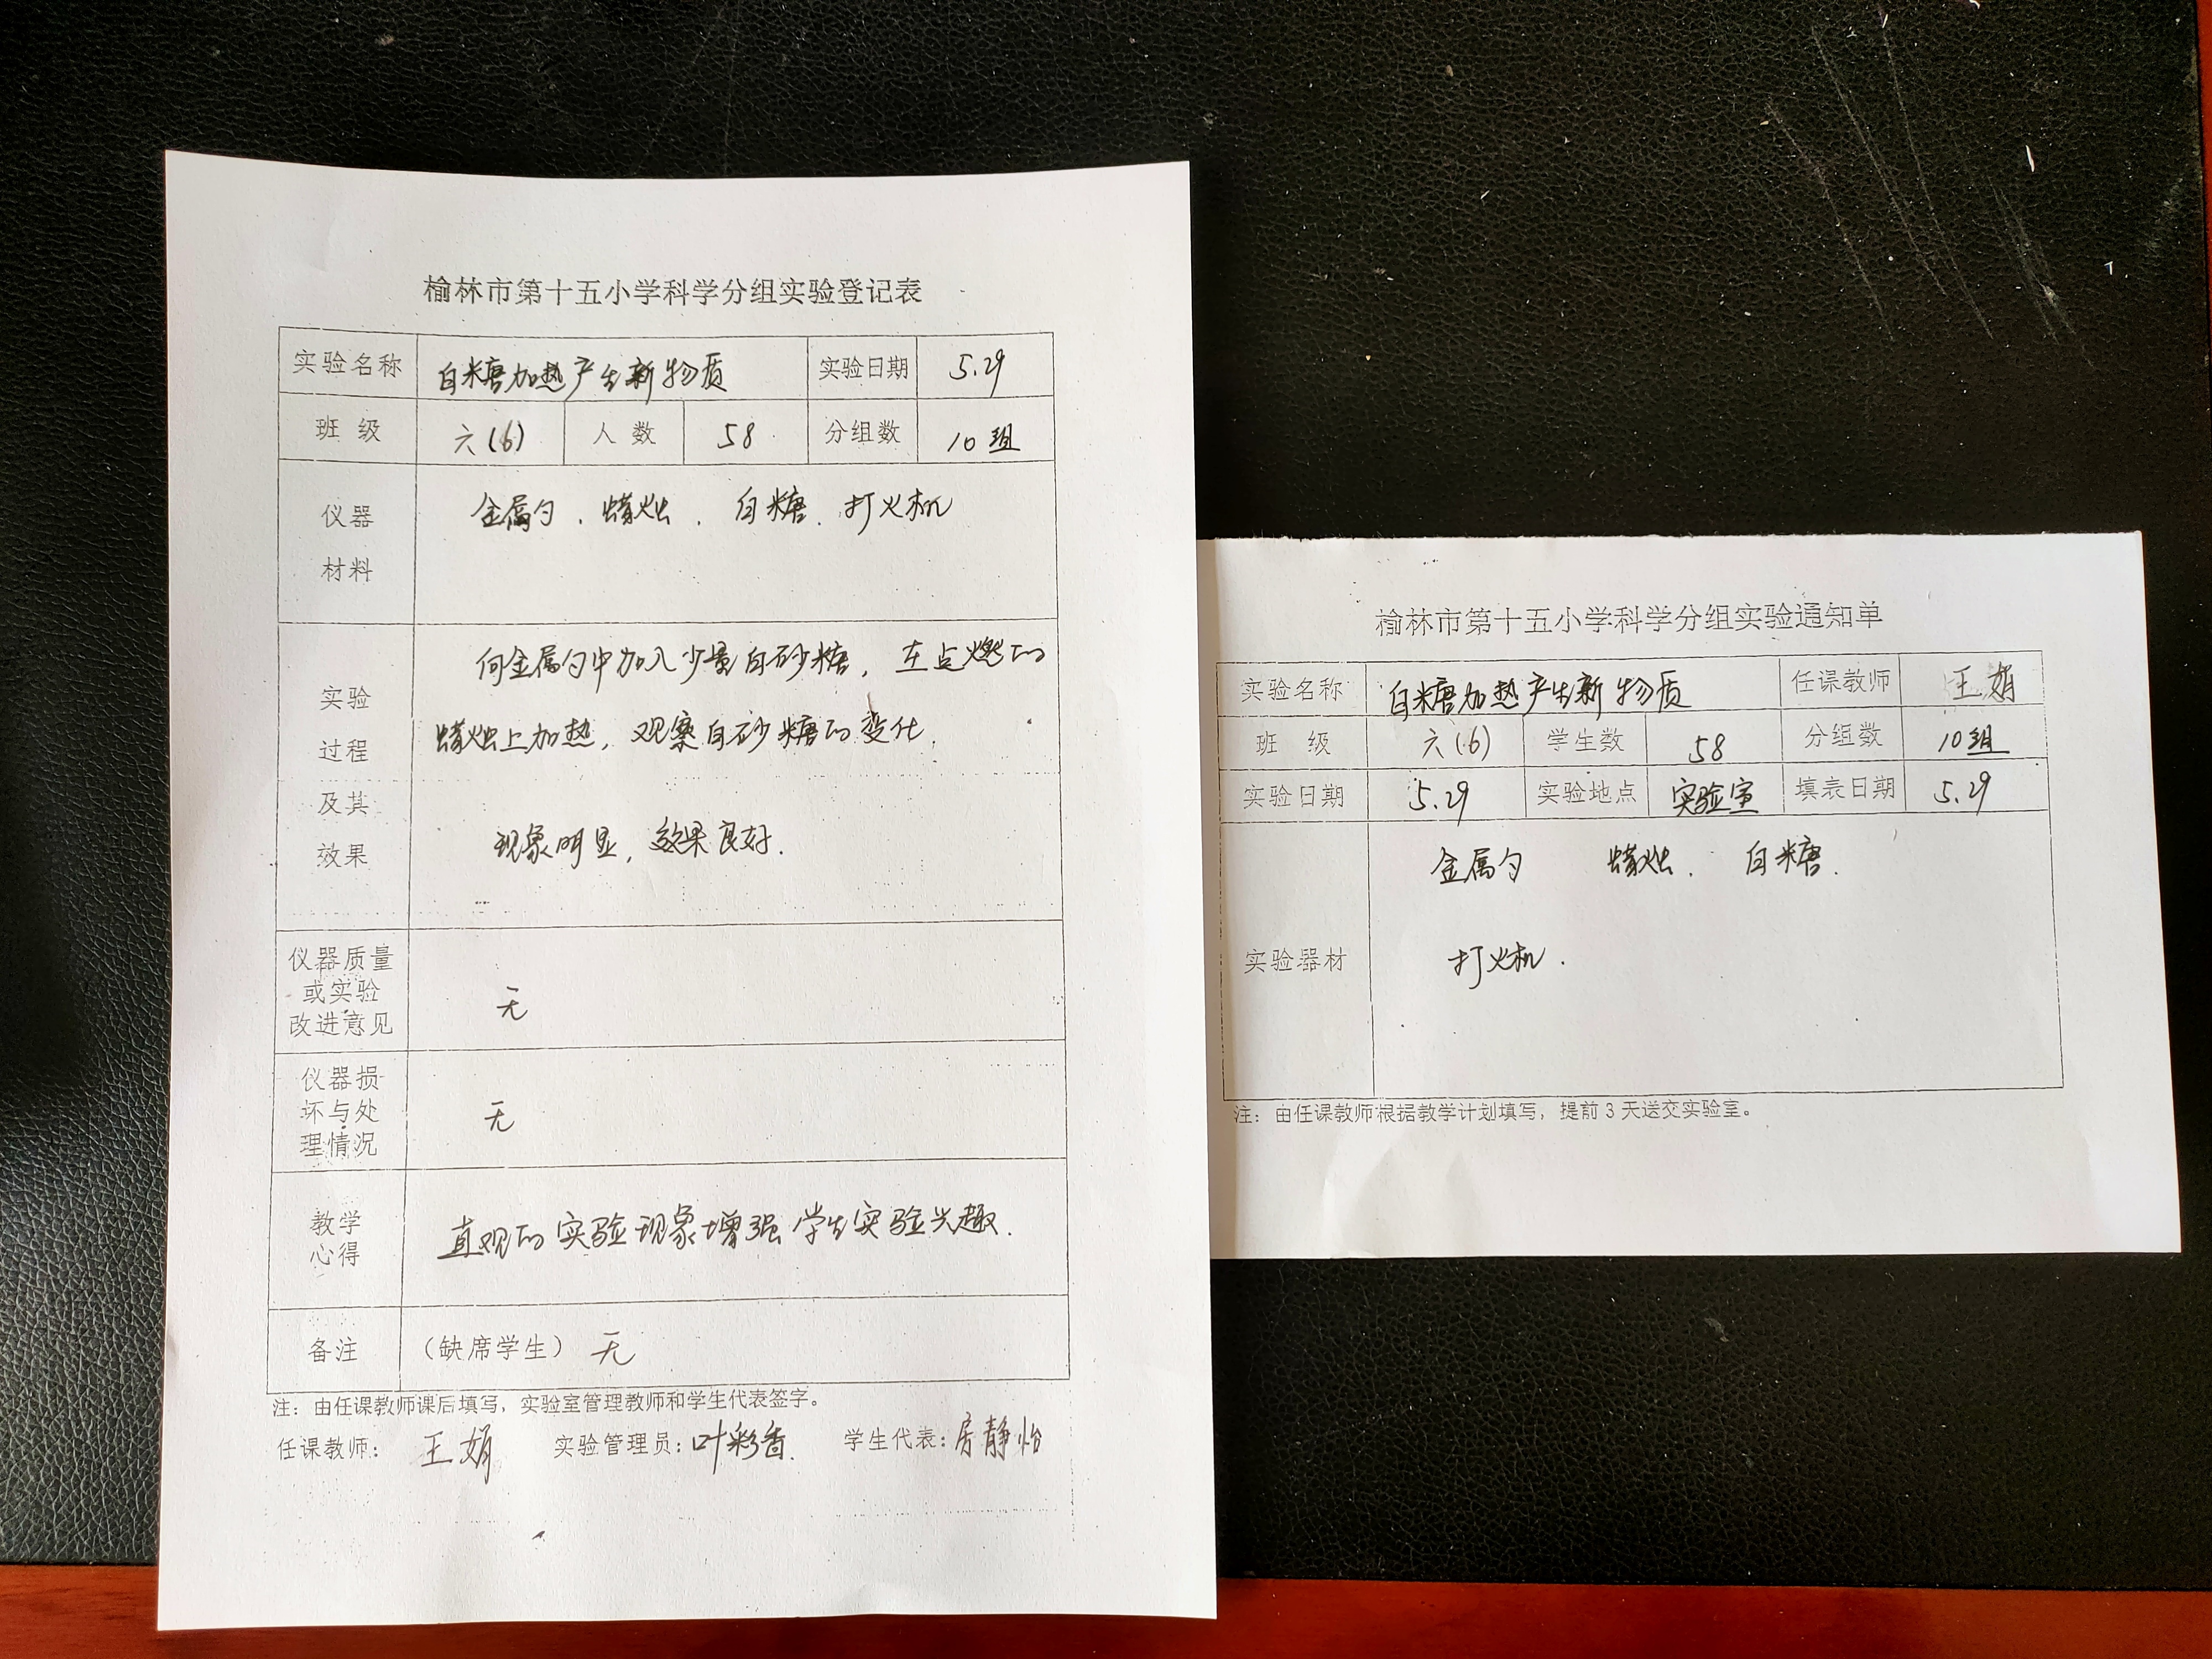 榆林市第十五小学科学分组实验登记表
实验名称 白糖加热产生新物质 实验日期 5.29
班 级 六(6) 人 数 58 分组数 10组
仪器 金属勺、蜡烛、白糖、打火机
材料
向金属勺中加入少量白砂糖，在点燃的
实验
蜡烛上加热，观察白砂糖的变化.
过程
及其
现象明显，效果良好.
效果
仪器质量
或实验 无
改进意见
仪器损
坏与处 无
理情况
教学 直观的实验现象增强学生实验兴趣.
心得
备注 （缺席学生） 无
注：由任课教师课后填写，实验室管理教师和学生代表签字。
任课教师： 王娟 实验管理员：叶彩香. 学生代表：房静怡
榆林市第十五小学科学分组实验通知单
实验名称 白糖加热产生新物质 任课教师 王娟
班 级 六(6) 学生数 58 分组数 10组
实验日期 5.29 实验地点 实验室 填表日期 5.29
金属勺 蜡烛. 白糖.
实验器材 打火机.
注：由任课教师根据教学计划填写，提前 3 天送交实验室。